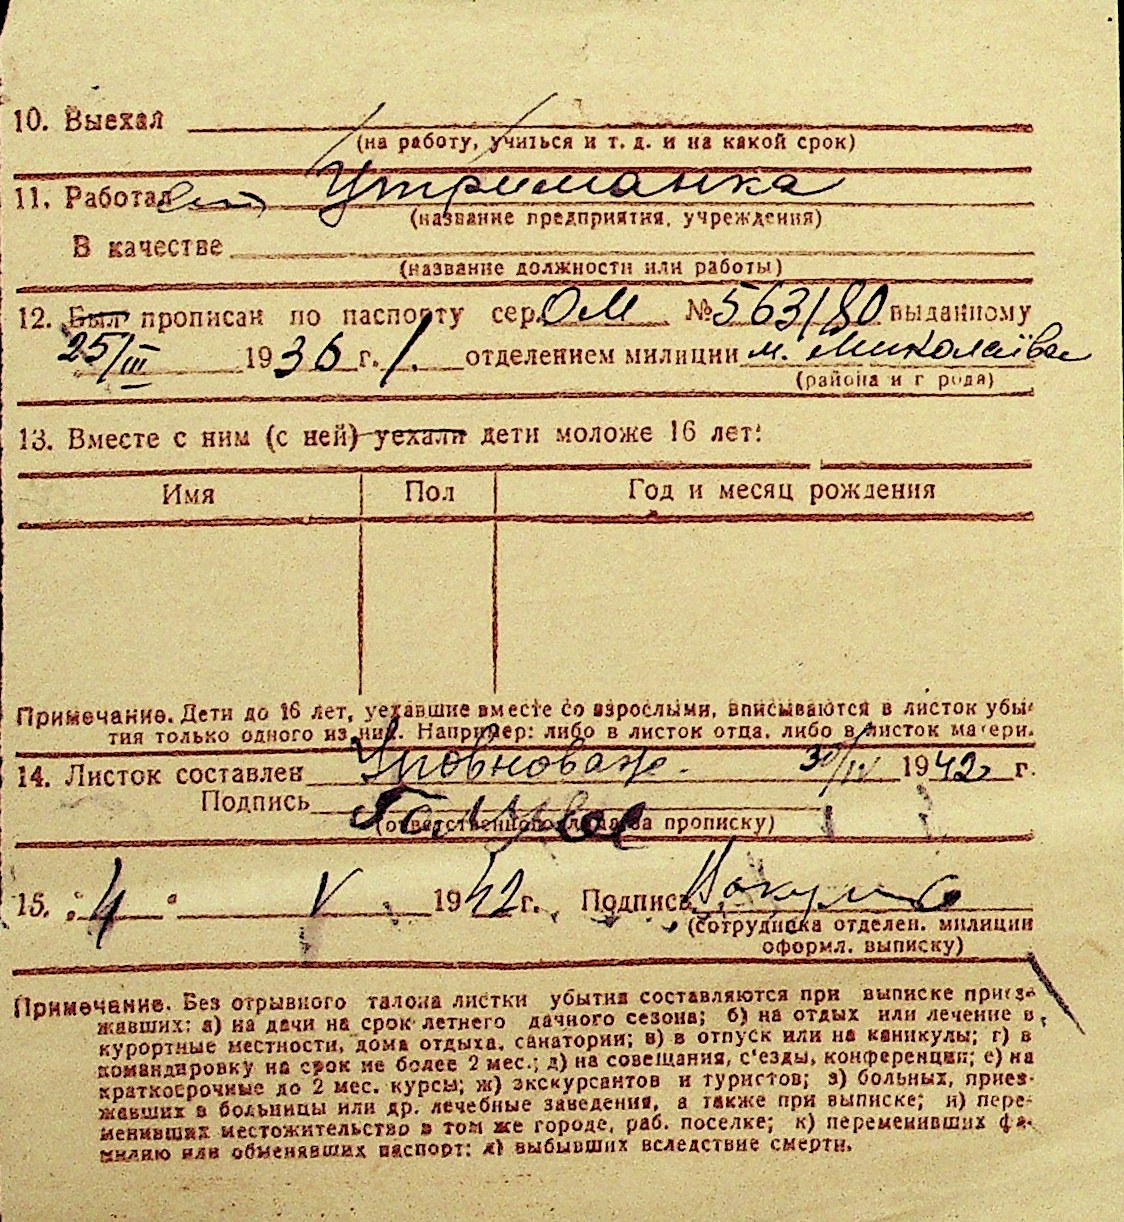 10. Выехал
(на работу, учиться и т. д. и на какой срок)
11. Работал Утриманка
(название предприятия, учреждения)
В качестве
(название должности или работы)
12. Был прописан по паспорту сер. ОМ № 563180 выданному
25/III 1936 г. 1. отделением милиции м. Миколаїва
(района и г рода)
13. Вместе с ним (с ней) уехали дети моложе 16 лет:
Имя Пол Год и месяц рождения
Примечание. Дети до 16 лет, уехавшие вместе со взрослыми, вписываются в листок убы-
тия только одного из них. Например: либо в листок отца, либо в листок матери.
14. Листок составлен Уповноваж. 30/IV 1942 г.
Подпись
(ответственного лица за прописку)
15. "4" V 1942 г. Подпись
(сотрудника отделен. милиции
оформл. выписку)
Примечание. Без отрывного талона листки убытия составляются при выписке приез-
жавших: а) на дачи на срок летнего дачного сезона; б) на отдых или лечение в
курортные местности, дома отдыха, санатории; в) в отпуск или на каникулы; г) в
командировку на срок не более 2 мес.; д) на совещания, с'езды, конференции; е) на
краткосрочные до 2 мес. курсы; ж) экскурсантов и туристов; з) больных, приез-
жавших в больницы или др. лечебные заведения, а также при выписке; и) пере-
менивших местожительство в том же городе, раб. поселке; к) переменивших фа-
милию или обменявших паспорт; л) выбывших вследствие смерти.